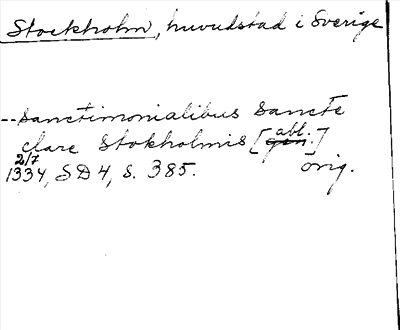 Stockholm, huvudstad i Sverige
--Sanctimonialibus Sancte
abl.
clare Stokholmis [gen.]
2/7
1334, SD 4, s. 385. orig.